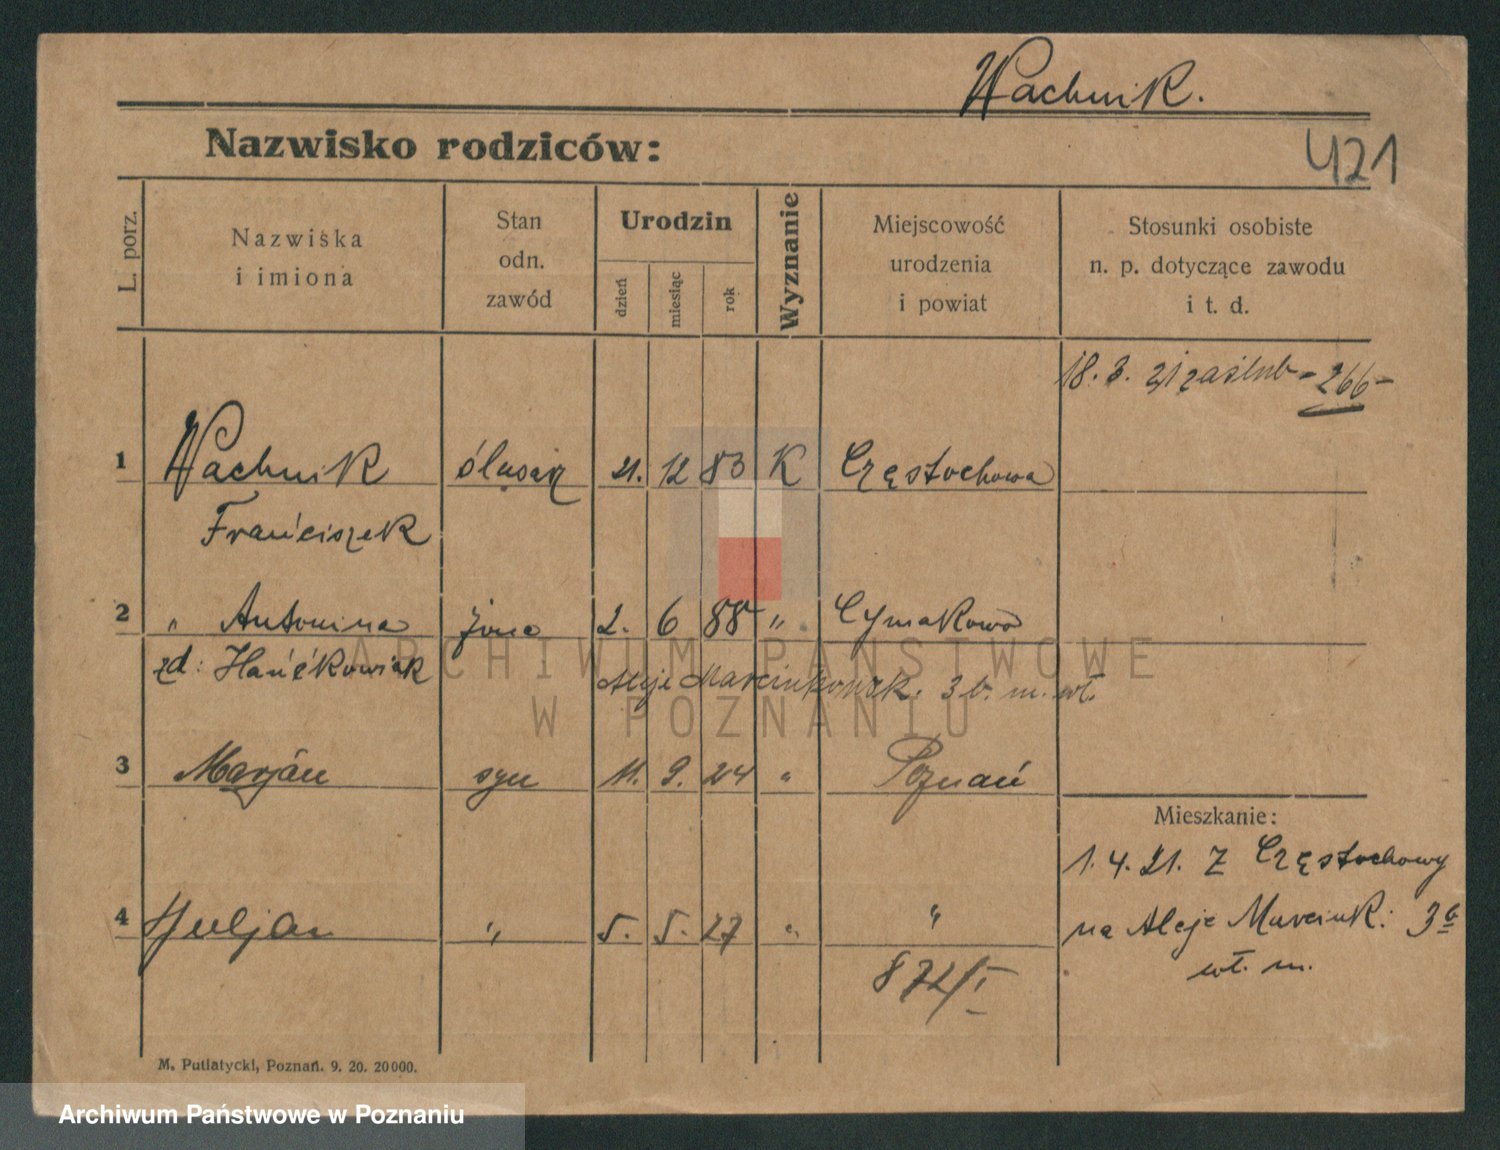 Wachnik.
421
Nazwisko rodziców:
L. porz.
Nazwiska
i imiona
Stan
odn.
zawód
Urodzin
dzień
miesiąc
rok
Wyznanie
Miejscowość
urodzenia
i powiat
Stosunki osobiste
n. p. dotyczące zawodu
i t. d.
18. 3. 21 zaślub - 266 -
1 Wachnik ślusarz 21. 12 83 K Częstochowa
Franciszek
2 " Antonina żona 2. 6 88 "
zd:
Aleje Marcinkowsk. 3 b. m. wł.
3 Marjan syn 11. 9. 24 " Poznań
Mieszkanie:
1. 4. 21. Z Częstochowy
4 Juljan " 5. 5. 27 " "
na Aleje Marcink: 3 b
wł. m.
872/I
M. Putiatycki, Poznań. 9. 20. 20000.
ARCHIWUM PAŃSTWOWE
W POZNANIU
Archiwum Państwowe w Poznaniu